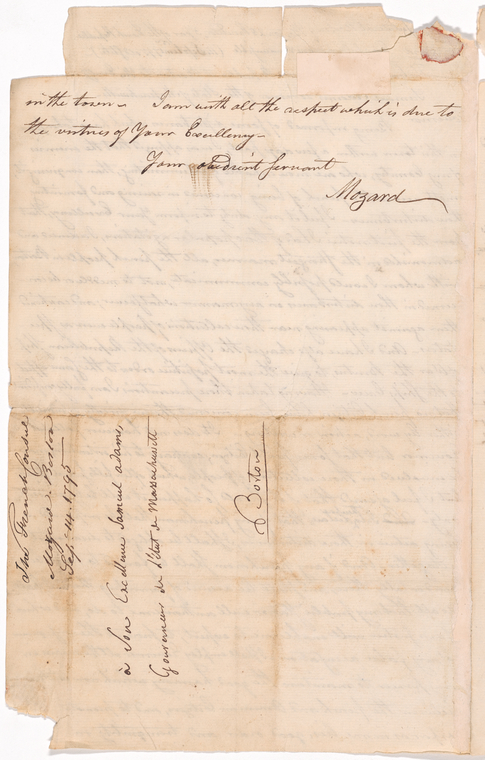 in the town - I am with all the respect which is due to
the virtues of Your Excellency -
Your obedient Servant
Mozard
The French Consul
Mozard - Boston
Sep. 14. 1795
à Son Excellence Samuel adams,
Gouverneur de l'état de Massachusett
Boston